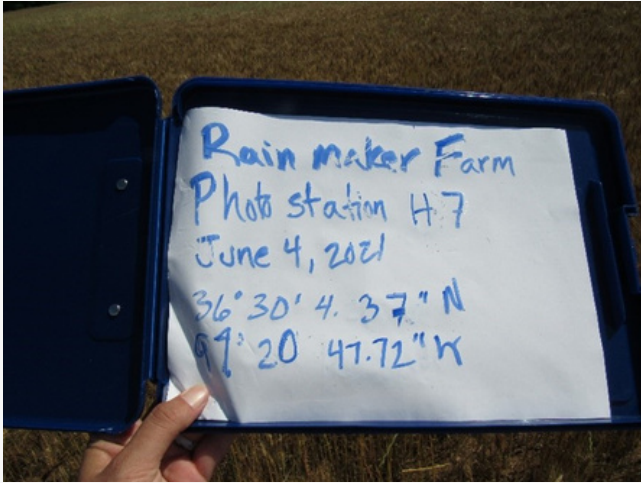 Rain maker Farm
Photo station H7
June 4, 2021
36° 30' 4. 37" N
99° 20 47.72" W